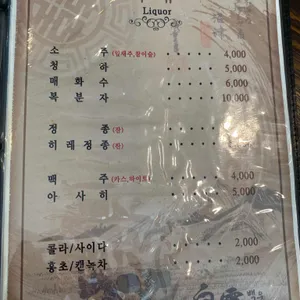 Liquor
소 주 (잎새주,참이슬) ····· 4,000
청 하 ····· 5,000
매 화 수 ····· 6,000
복 분 자 ····· 10,000
정 종 (잔) ·····
히 레 정 종 (잔) ·····
맥 주 (카스,하이트) ····· 4,000
아 사 히 ····· 5,000
콜라/사이다 ····· 2,000
홍초/캔녹차 ····· 2,000